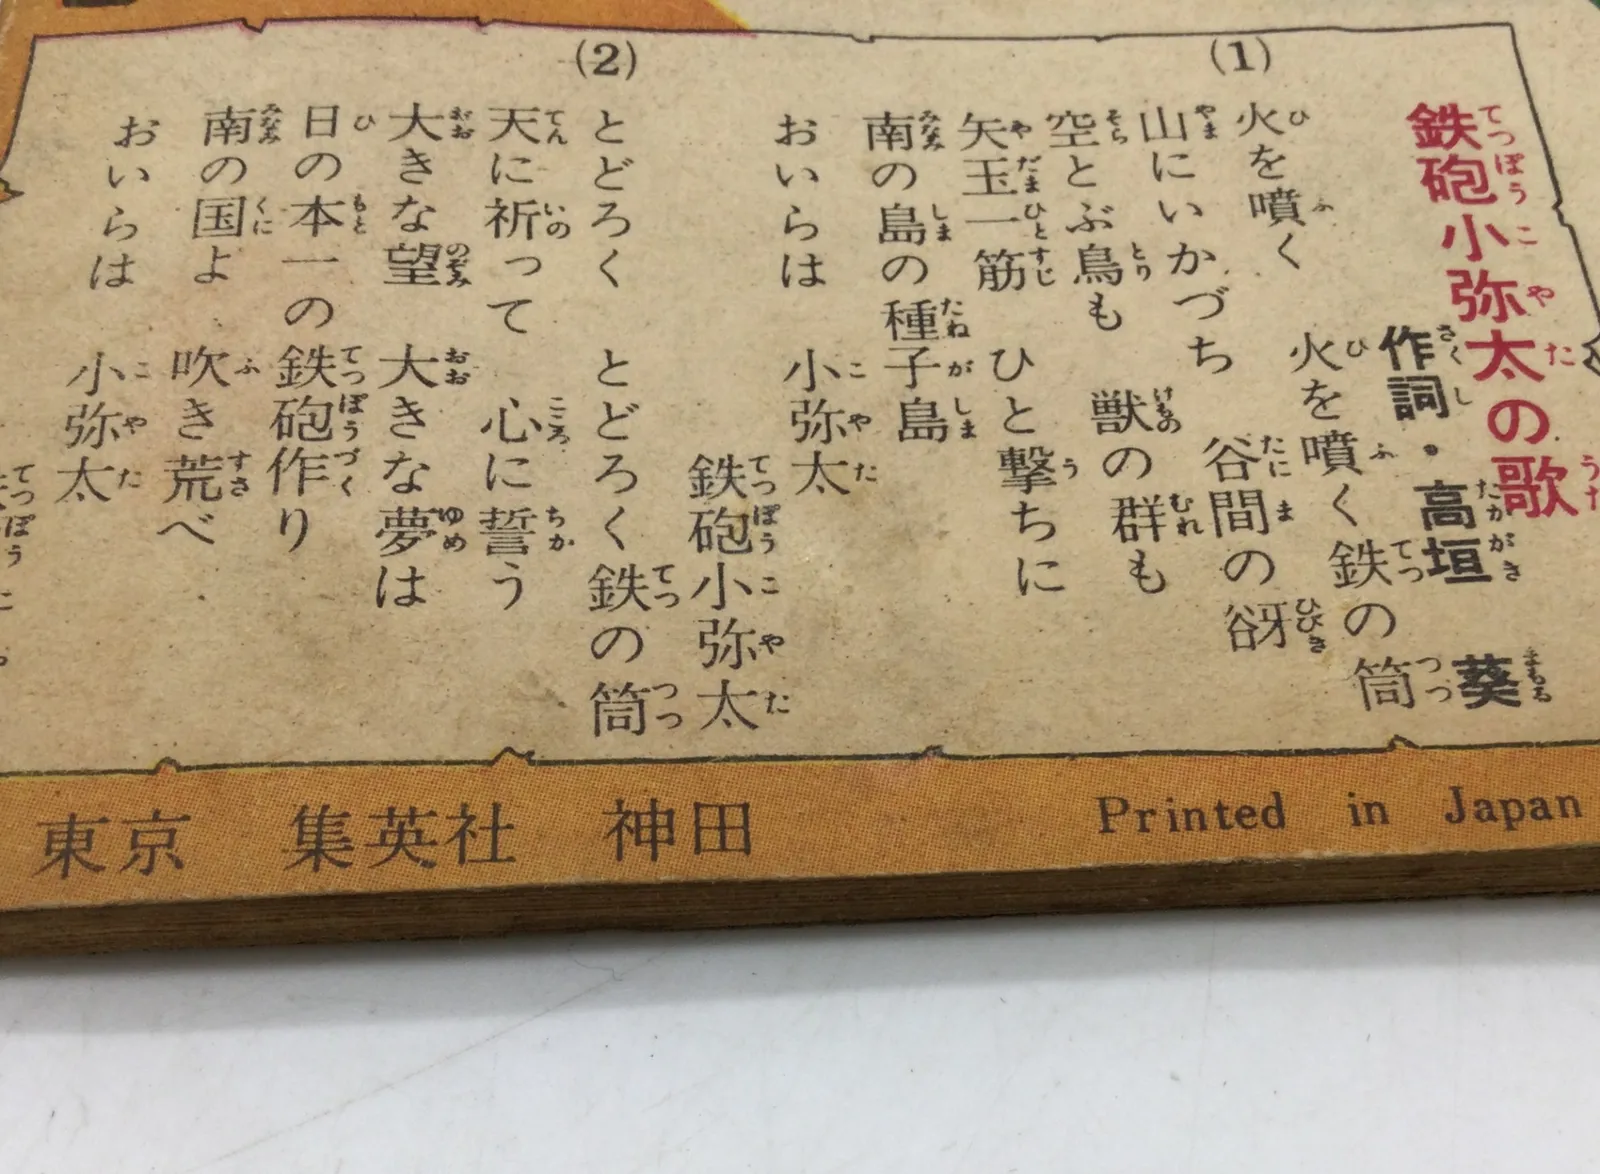 鉄砲小弥太の歌
作詞・高垣 葵
(1)
火を噴く 火を噴く 鉄の筒
山にいかづち 谷間の谺
空とぶ鳥も 獣の群も
矢玉一筋 ひと撃ちに
南の島の種子島
おいらは 小弥太
鉄砲小弥太
(2)
とどろく とどろく 鉄の筒
天に祈って 心に誓う
大きな望 大きな夢は
日の本一の 鉄砲作り
南の国よ 吹き荒べ
おいらは 小弥太
東京 集英社 神田
Printed in Japan